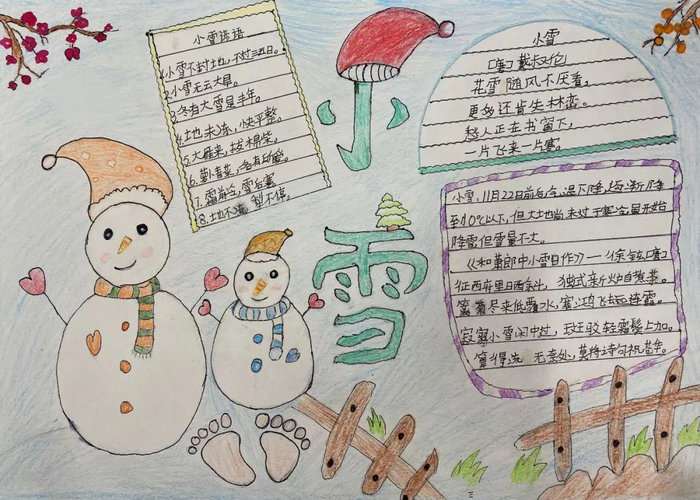 小雪谚语
1.小雪不封地,不过三五日。
2.小雪无云大旱。
3.冬有大雪是丰年。
4.地未冻,快平整。
5.大雁来,拔棉柴。
6.
7.
8.地不冻,犁不停。
小
雪
小雪
[唐]戴叔伦
花雪随风不厌看,
更多还肯失林峦。
愁人正在书窗下,
一片飞来一片寒。
小雪,11月22日前后
到0℃以下,但大地尚未过于寒
降雪但雪量不大。
《和萧郎中小雪日作》——徐铉[唐]
征西府里日西斜,独试新炉自煮茶。
篱菊尽来低覆水,塞鸿飞去远连霞。
寂寥小雪闲中过,斑驳轻霜鬓上加。
算得流 无奈处,莫将诗句祝苍华。